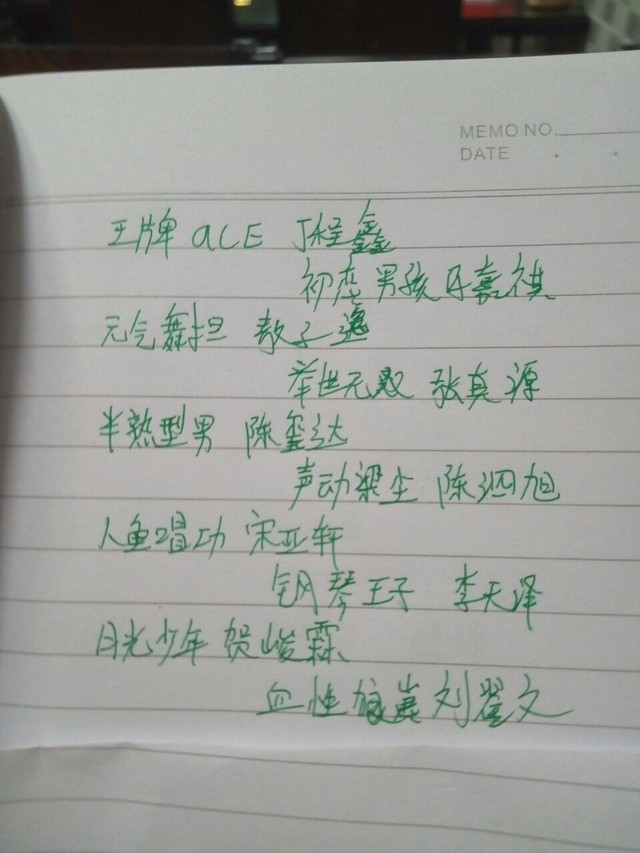 MEMO NO.
DATE
王牌 ACE 丁程鑫
初恋男孩 马嘉祺
元气舞担 敖子逸
举世无双 张真源
半熟型男 陈玺达
声动梁尘 陈泗旭
人鱼唱功 宋亚轩
钢琴王子 李天泽
月光少年 贺峻霖
血性狼崽 刘耀文